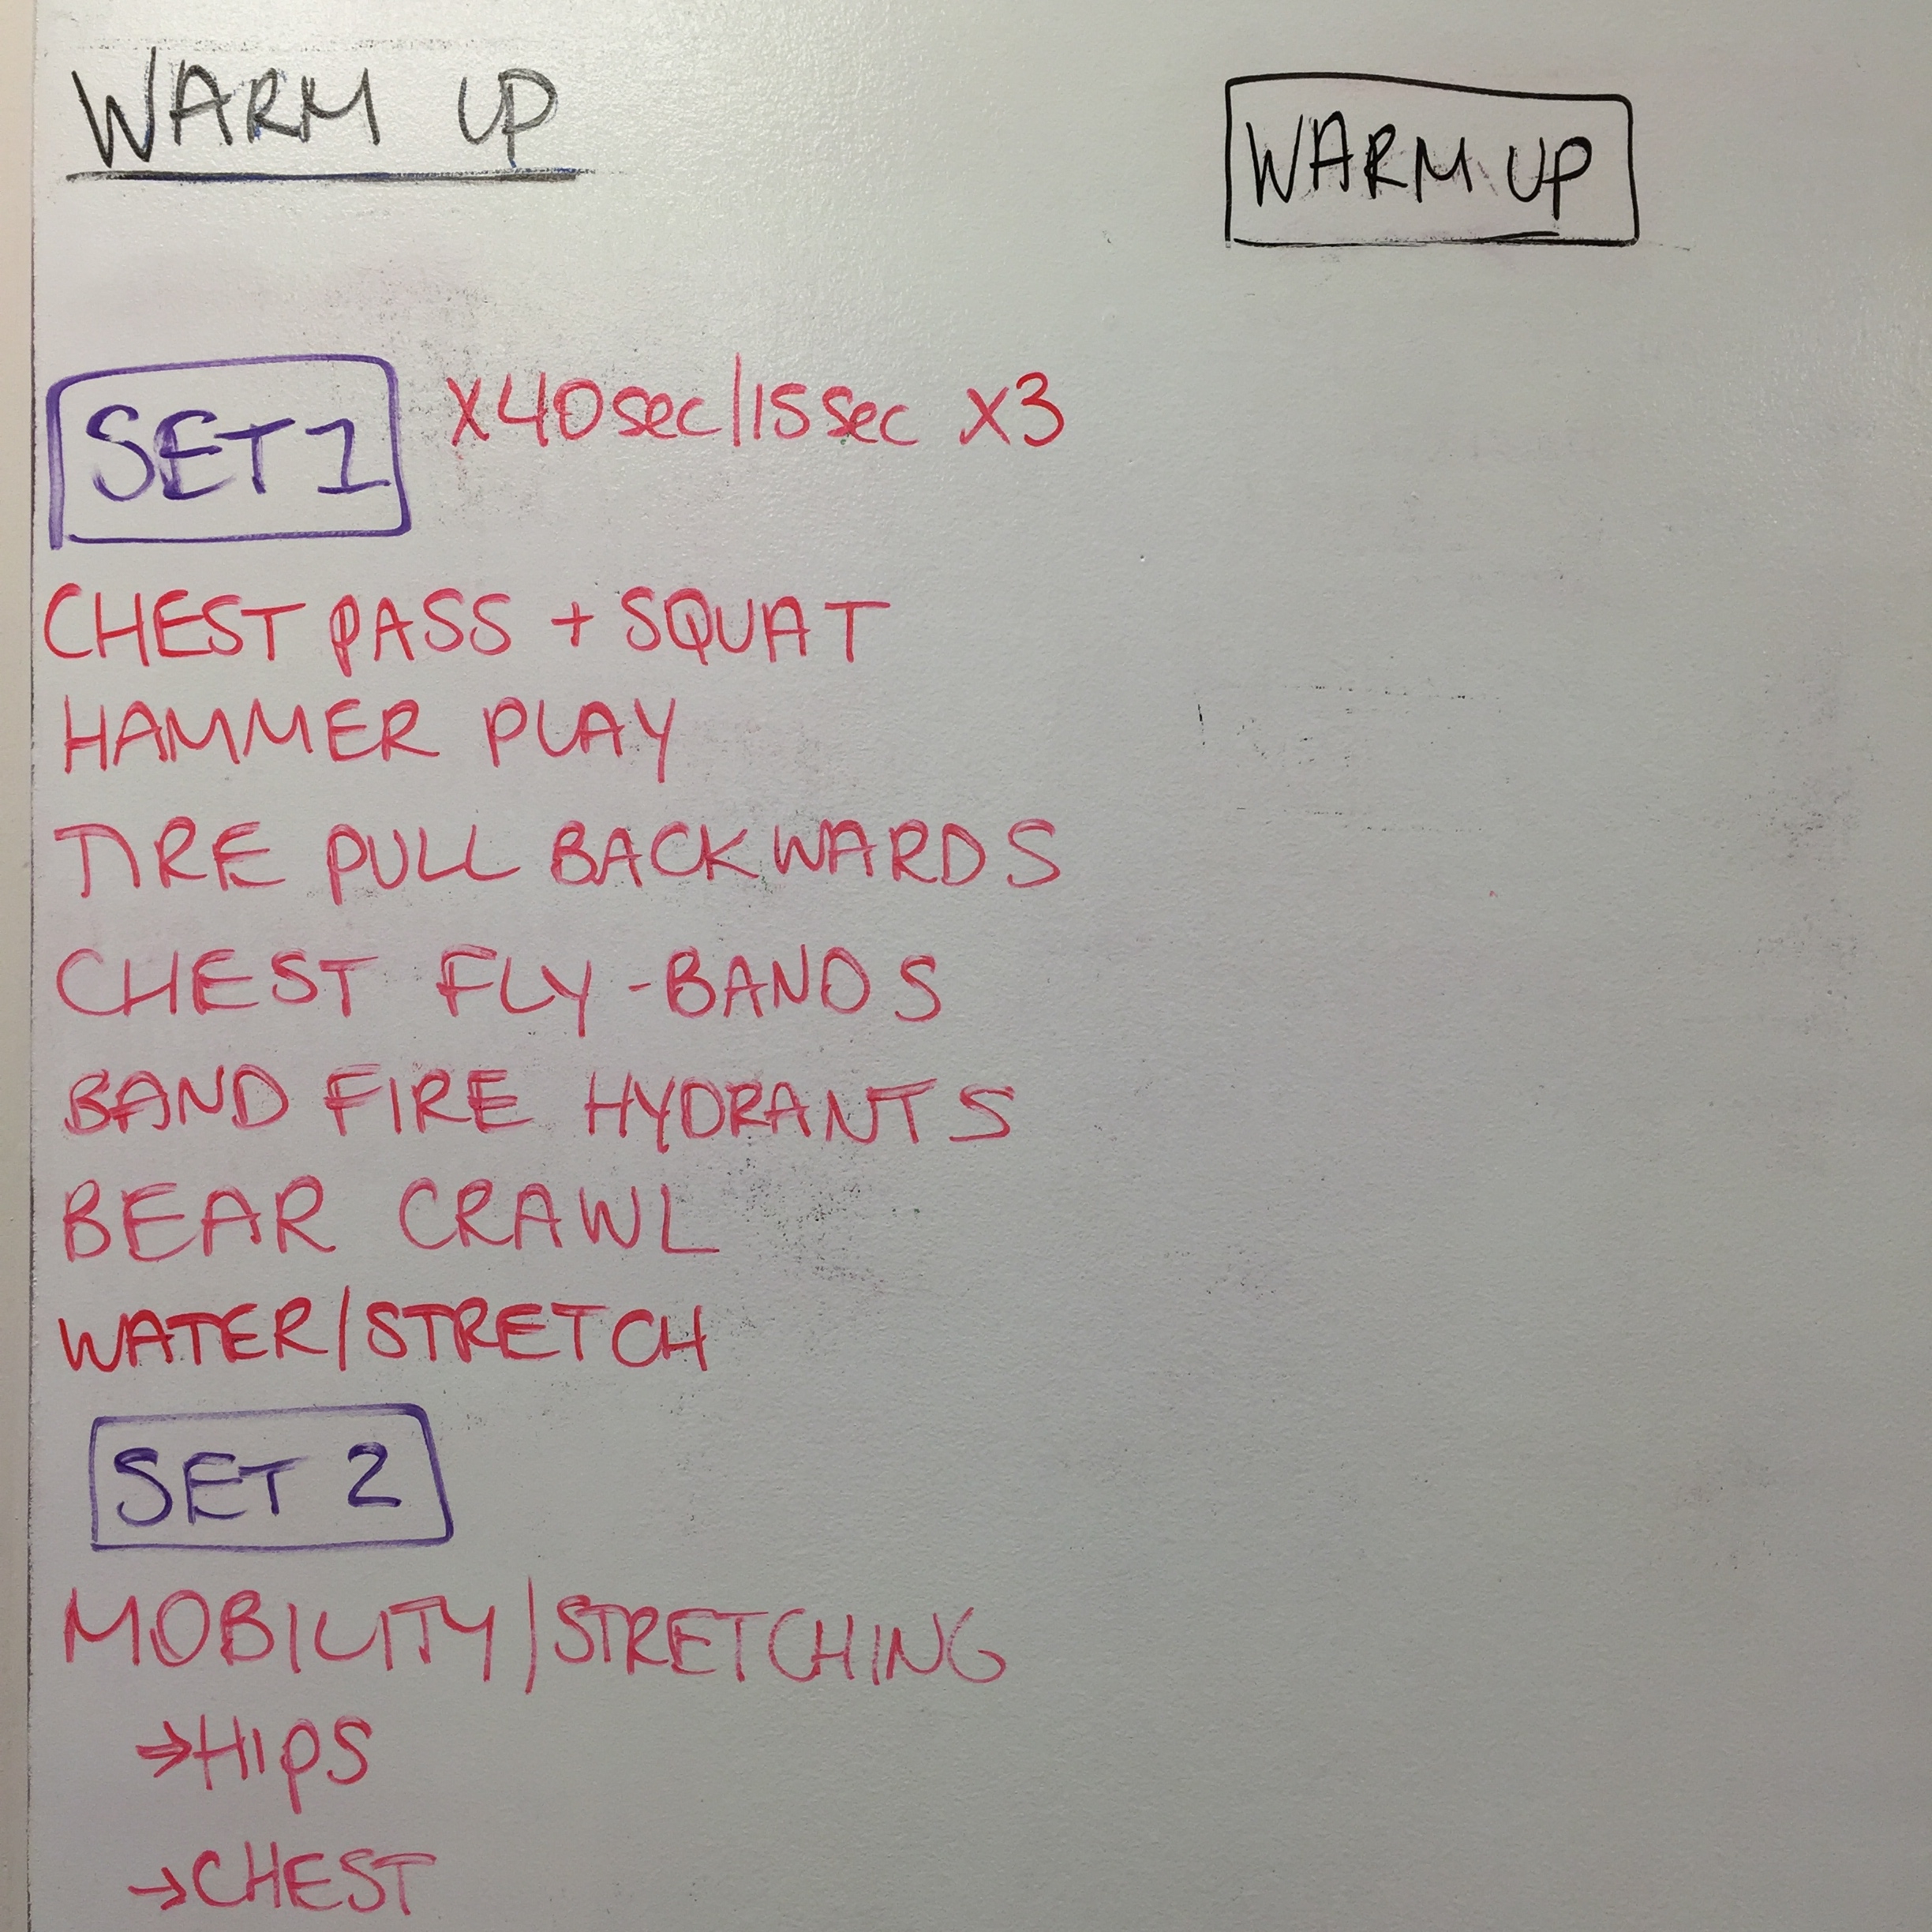 WARM UP
WARM UP
SET 1 X40sec/15sec X3
CHEST PASS + SQUAT
HAMMER PLAY
TIRE PULL BACKWARDS
CHEST FLY - BANDS
BAND FIRE HYDRANTS
BEAR CRAWL
WATER/STRETCH
SET 2
MOBILITY/STRETCHING
⇒ HIPS
→ CHEST